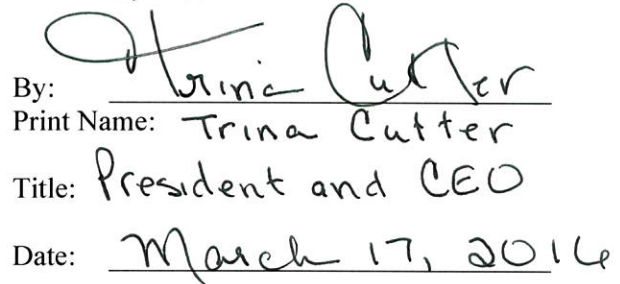 By: Trina Cutter
Print Name: Trina Cutter
Title: President and CEO
Date: March 17, 2016